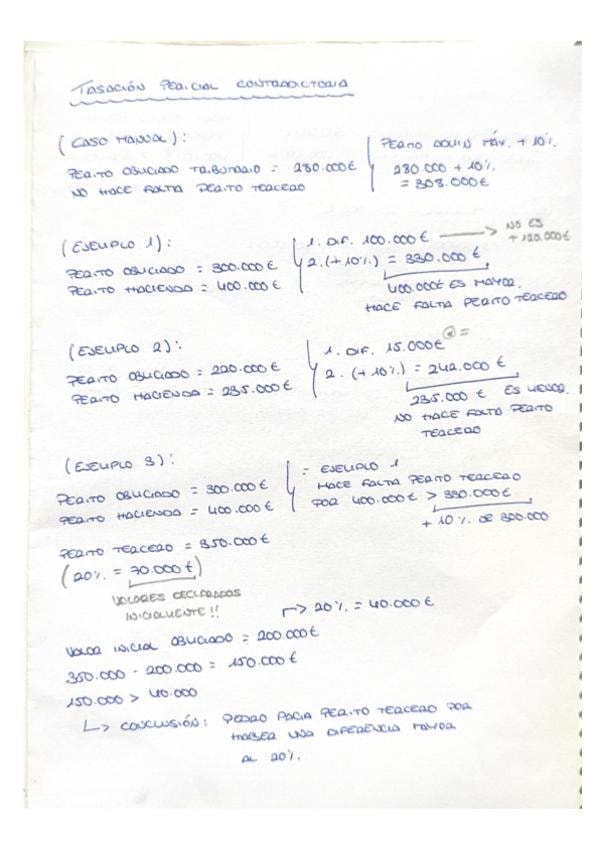 TASACIÓN PERICIAL CONTRADICTORIA
(CASO MANUAL):
PERITO OBLIGADO TRIBUTARIO = 280.000€
NO HACE FALTA PERITO TERCERO
PERITO ADMIN MÁX. + 10%.
280.000 + 10%.
= 308.000€
(EJEMPLO 1):
PERITO OBLIGADO = 300.000€
PERITO HACIENDA = 400.000€
1. DIF. 100.000€ → NO ES
+ 120.000€
2. (+ 10%.) = 330.000 €
400.000€ ES MAYOR.
HACE FALTA PERITO TERCERO
(EJEMPLO 2):
PERITO OBLIGADO = 220.000€
PERITO HACIENDA = 235.000€
1. DIF. 15.000€ =
2. (+ 10%.) = 242.000 €
235.000 € ES MENOR.
NO HACE FALTA PERITO
TERCERO
(EJEMPLO 3):
PERITO OBLIGADO = 300.000€
PERITO HACIENDA = 400.000€
= EJEMPLO 1
HACE FALTA PERITO TERCERO
POR 400.000€ > 330.000€
+ 10%. DE 300.000
PERITO TERCERO = 350.000€
(20%. = 70.000€)
VALORES DECLARADOS
INICIALMENTE!!
→ 20%. = 40.000€
VALOR INICIAL OBLIGADO = 200.000€
350.000 - 200.000 = 150.000€
150.000 > 40.000
→ CONCLUSIÓN: PEDRO PAGA PERITO TERCERO POR
HABER UNA DIFERENCIA MAYOR
AL 20%.